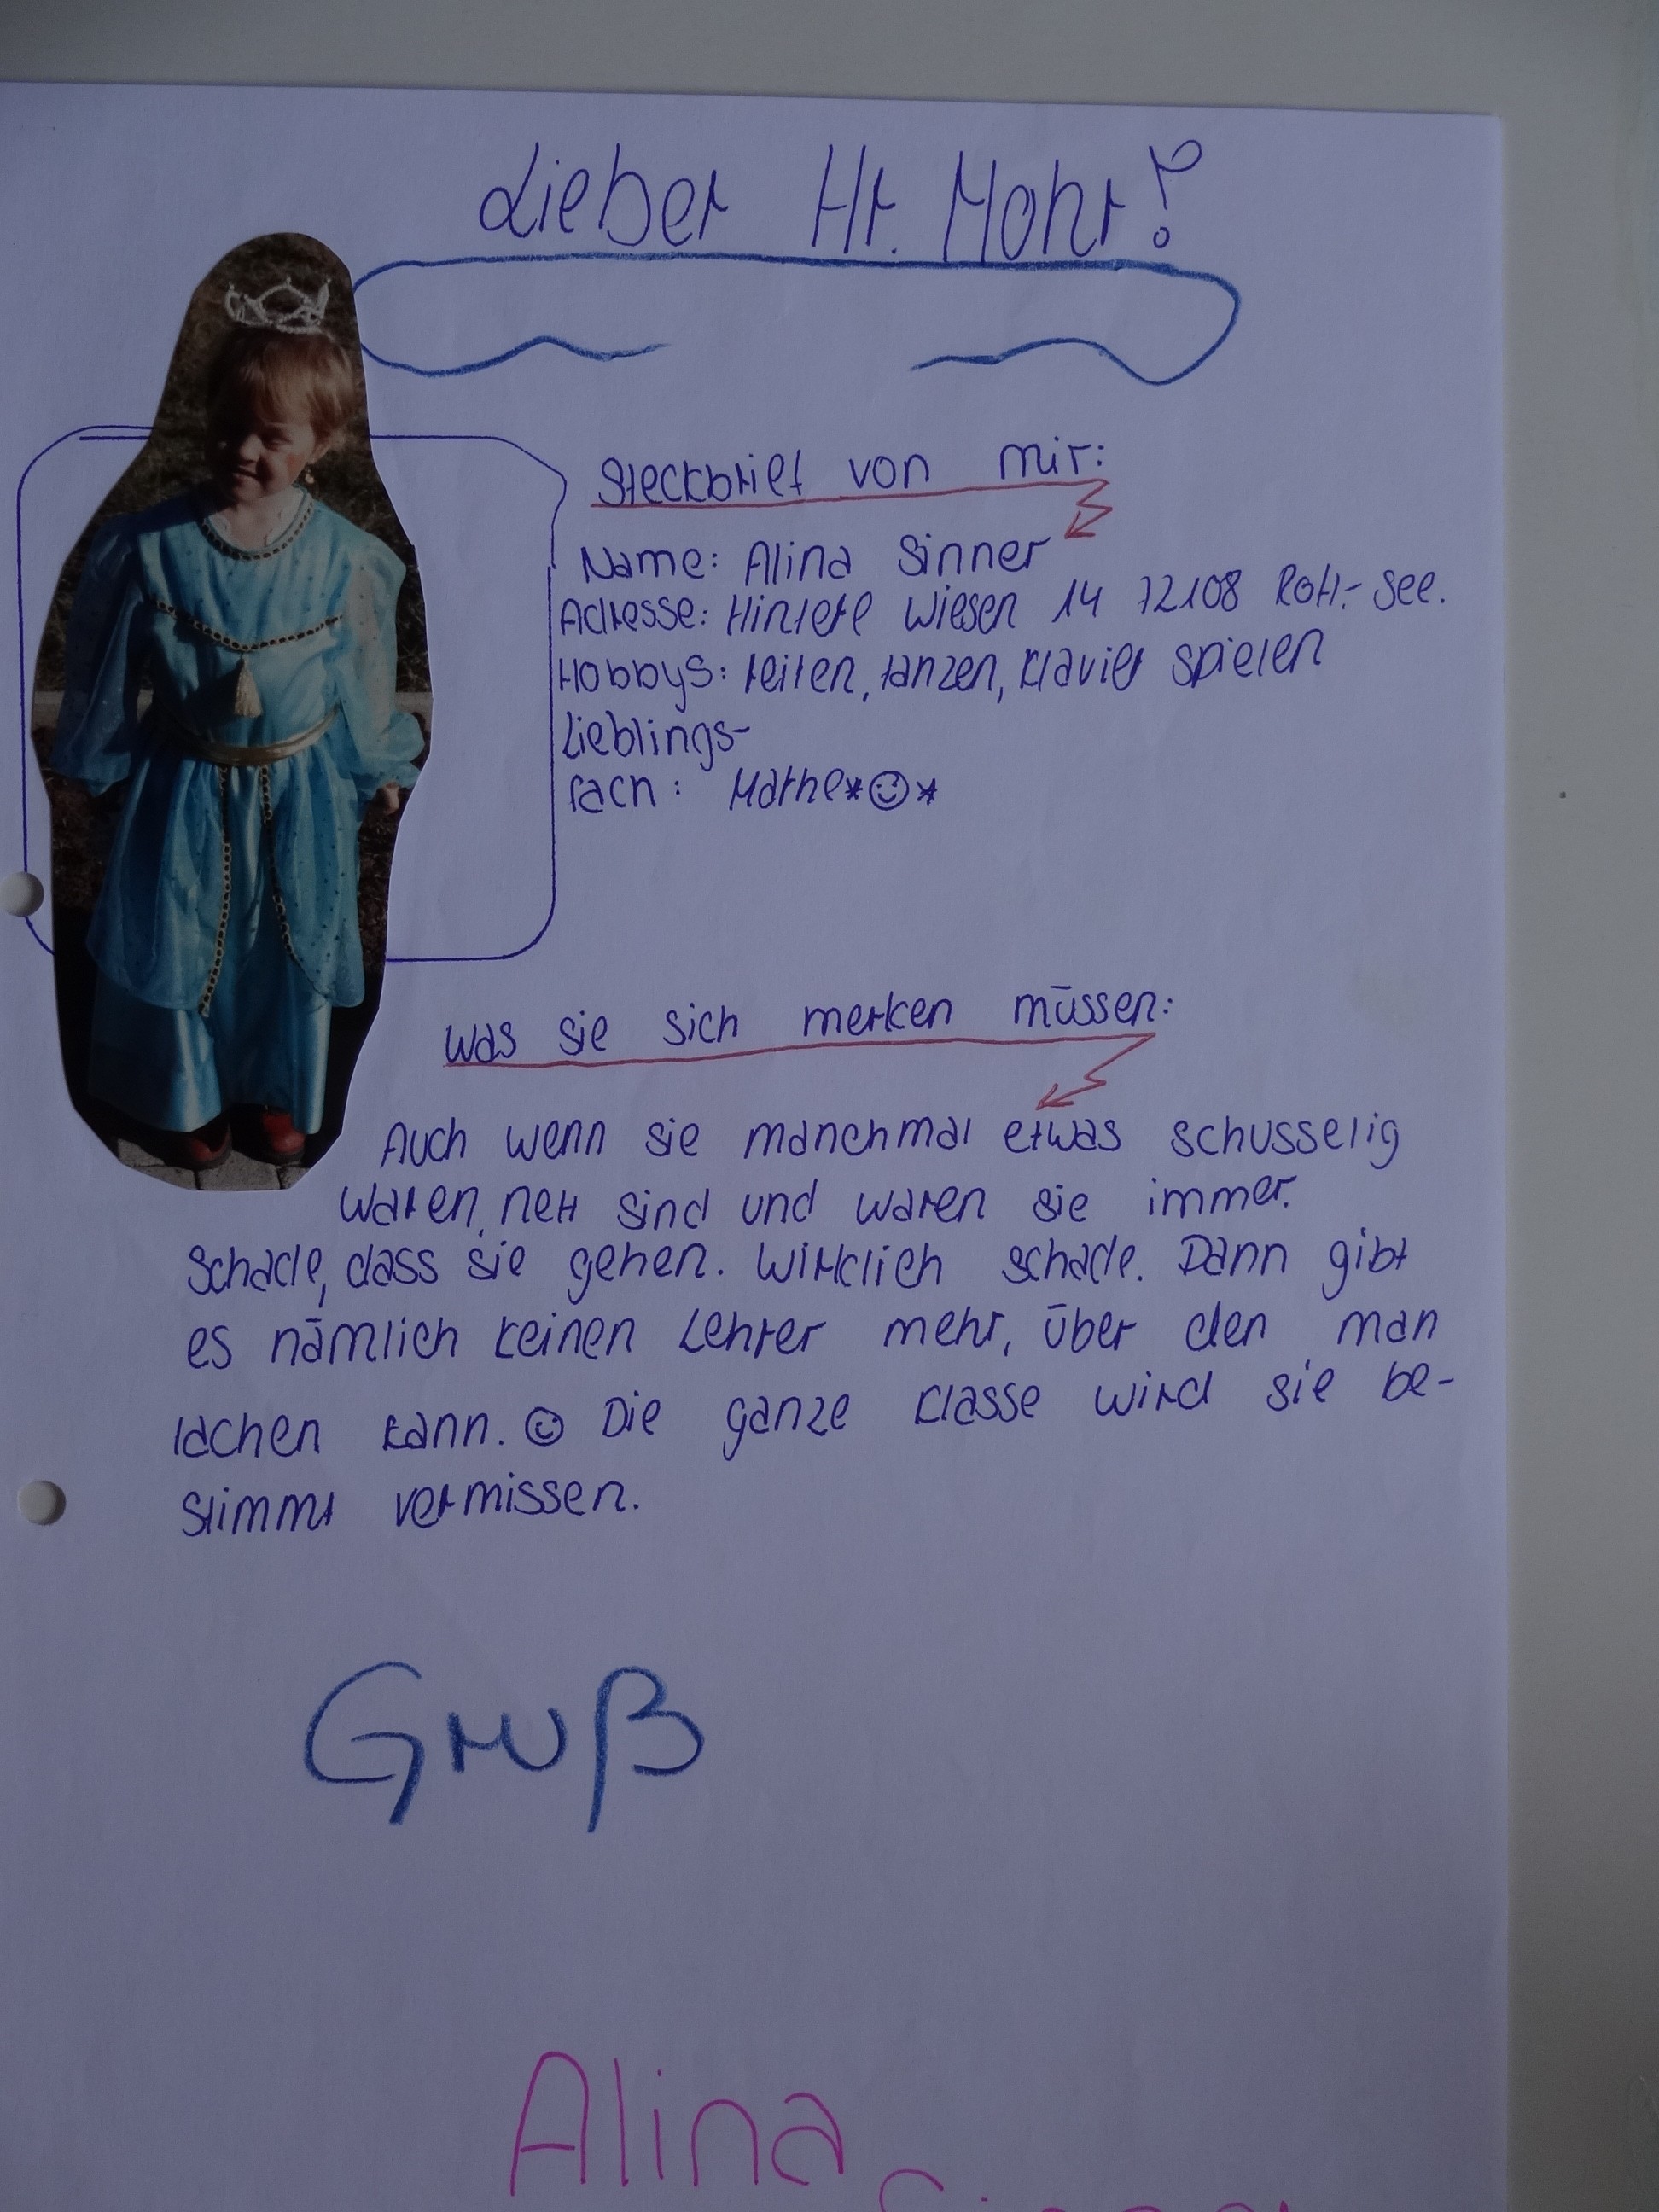 Lieber Hr. Mohr!
Steckbrief von mir:
Name: Alina Sinner
Adresse: Hintere Wiesen 14 72108 Rott.-See.
Hobbys: reiten, tanzen, Klavier spielen
Lieblings-
fach: Mathe*☺*
Was sie sich merken müssen:
Auch wenn sie manchmal etwas schusselig
waren, nett sind und waren sie immer.
Schade, dass sie gehen. Wirklich schade. Dann gibt
es nämlich keinen Lehrer mehr, über den man
lachen kann. ☺ Die ganze Klasse wird sie be-
stimmt vermissen.
Gruß
Alina